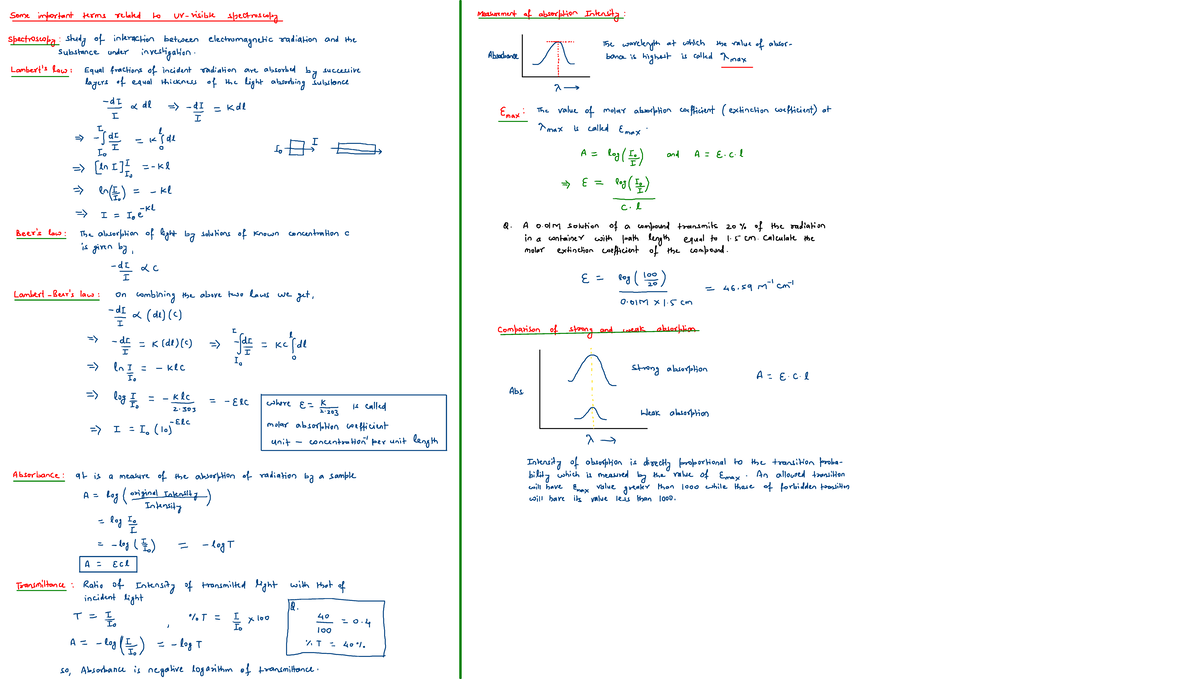 Some important terms related to UV-visible spectroscopy
Spectroscopy : study of interaction between electromagnetic radiation and the
substance under investigation.
Lambert's law : Equal fractions of incident radiation are absorbed by successive
layers of equal thickness of the light absorbing substance
-dI/I ∝ dl ⇒ -dI/I = K dl
⇒ -∫_{I₀}^{I} dI/I = K ∫₀^l dl
I₀ I
⇒ [ln I]_{I₀}^{I} = -Kl
⇒ ln(I/I₀) = -Kl
⇒ I = I₀ e^{-Kl}
Beer's law : The absorption of light by solutions of known concentration c
is given by,
-dI/I ∝ c
Lambert-Beer's law : On combining the above two laws we get,
-dI/I ∝ (dl)(c)
⇒ -dI/I = K(dl)(c) ⇒ -∫_{I₀}^{I} dI/I = Kc ∫₀^l dl
⇒ ln I/I₀ = -Klc
⇒ log I/I₀ = -Klc/2.303 = -Elc
⇒ I = I₀ (10)^{-Elc}
where E = K/2.203 is called
molar absorption coefficient
unit - concentration⁻¹ per unit length
Absorbance : It is a measure of the absorption of radiation by a sample
A = log (original Intensity/Intensity)
= log I₀/I
= -log (I/I₀) = -log T
A = Ecl
Transmittance : Ratio of Intensity of transmitted light with that of
incident light
T = I/I₀ , % T = I/I₀ × 100
A = -log (I/I₀) = -log T
Q.
40/100 = 0.4
% T = 40 %.
so, Absorbance is negative logarithm of transmittance.
Measurment of absorption Intensity :
Absorbance
λ →
The wavelength at which the value of absor-
bance is highest is called λmax
Emax : The value of molar absorption coefficient (extinction coefficient) at
λmax is called Emax.
A = log (I₀/I) and A = E.c.l
⇒ E = log (I₀/I)/c.l
Q. A 0.01M solution of a compound transmits 20% of the radiation
in a container with path length equal to 1.5 cm. Calculate the
molar extinction coefficient of the compound.
E = log (100/20)/0.01M × 1.5 cm = 46.59 M⁻¹ cm⁻¹
Comparison of strong and weak absorption
Abs.
Strong absorption
A = E.c.l
Weak absorption
λ →
Intensity of absorption is directly proportional to the transition proba-
bility which is measured by the value of Emax. An allowed transition
will have Emax value greater than 1000 while these of forbidden transition
will have its value less than 1000.